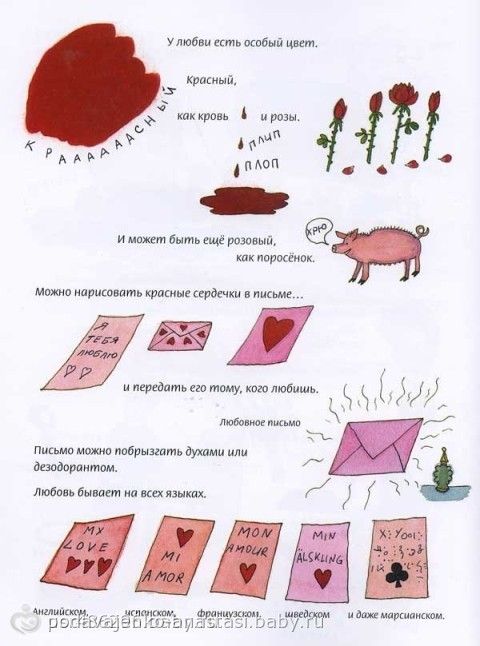 У любви есть особый цвет.
Красный,
КРААААААСНЫЙ
как кровь и розы.
ПЛИП
ПЛОП
И может быть ещё розовый,
как поросёнок.
ХРЮ
Можно нарисовать красные сердечки в письме...
Я
ТЕБЯ
ЛЮБЛЮ
и передать его тому, кого любишь.
Любовное письмо
Письмо можно побрызгать духами или
дезодорантом.
Любовь бывает на всех языках.
MY
LOVE
MI
AMOR
MON
AMOUR
MIN
ÄLSKLING
Английском, испанском, французском, шведском и даже марсианском.